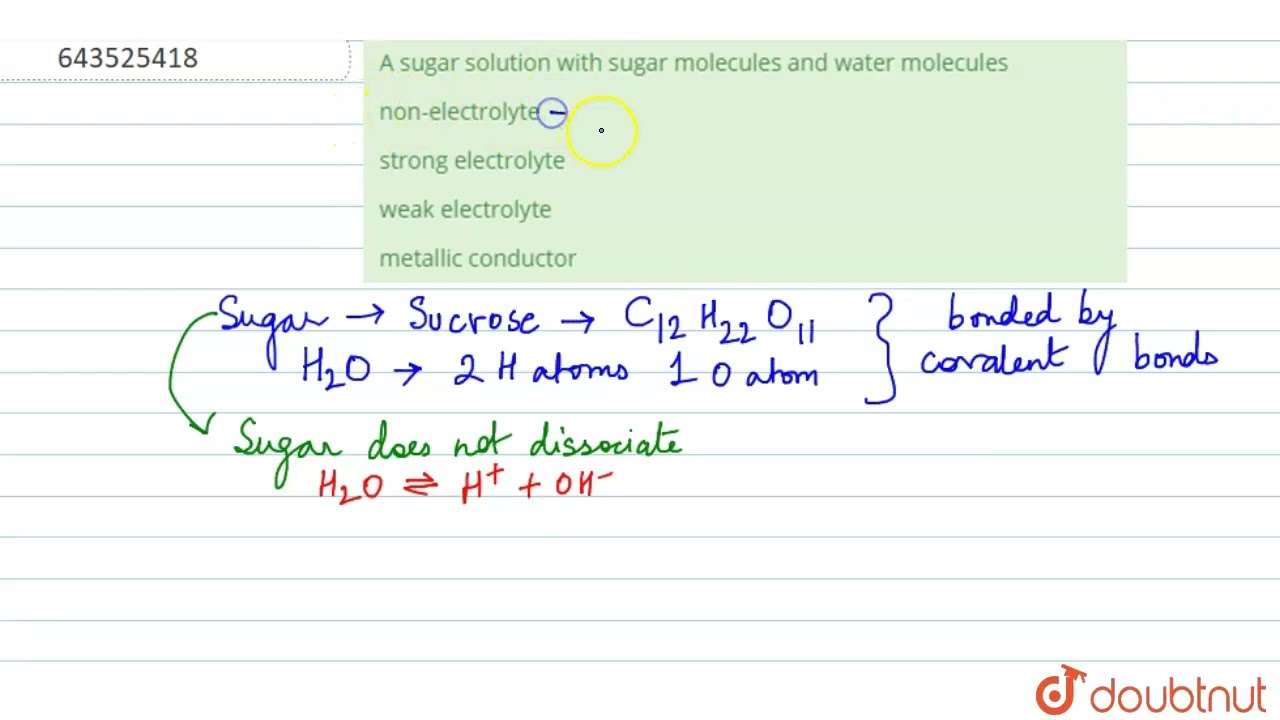 643525418
A sugar solution with sugar molecules and water molecules
non-electrolyte -
strong electrolyte
weak electrolyte
metallic conductor
Sugar → Sucrose → C₁₂ H₂₂ O₁₁ } bonded by
H₂O → 2 H atoms 1 O atom covalent bonds
Sugar does not dissociate
H₂O ⇌ H⁺ + OH⁻
doubtnut